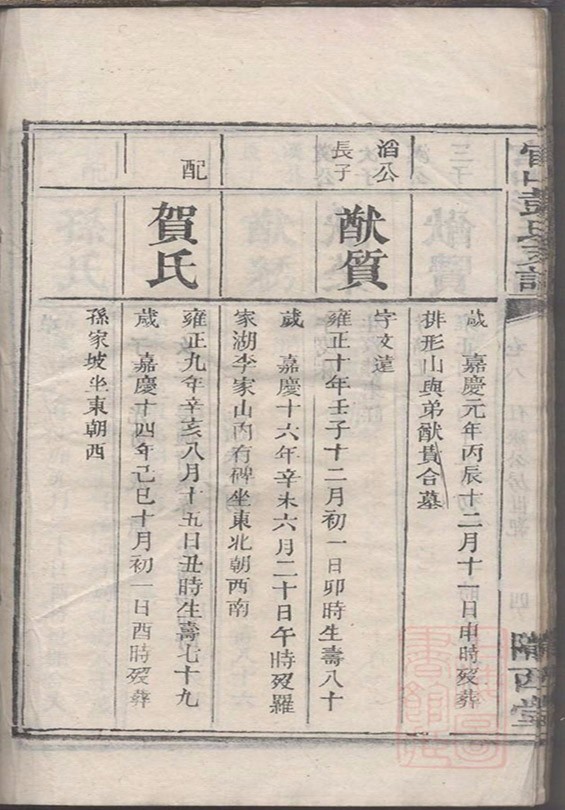 歲　嘉慶元年丙辰十二月十一日申時歿葬
排形山與弟猷貴合墓
滔公
長子
猷質
字文遠
雍正十年壬子十二月初一日卯時生壽八十
歲　嘉慶十六年辛未六月二十日午時歿羅
家湖李家山內有碑坐東北朝西南
配
賀氏
雍正九年辛亥八月十五日丑時生壽七十九
歲　嘉慶十四年己巳十月初一日酉時歿葬
孫家坡坐東朝西